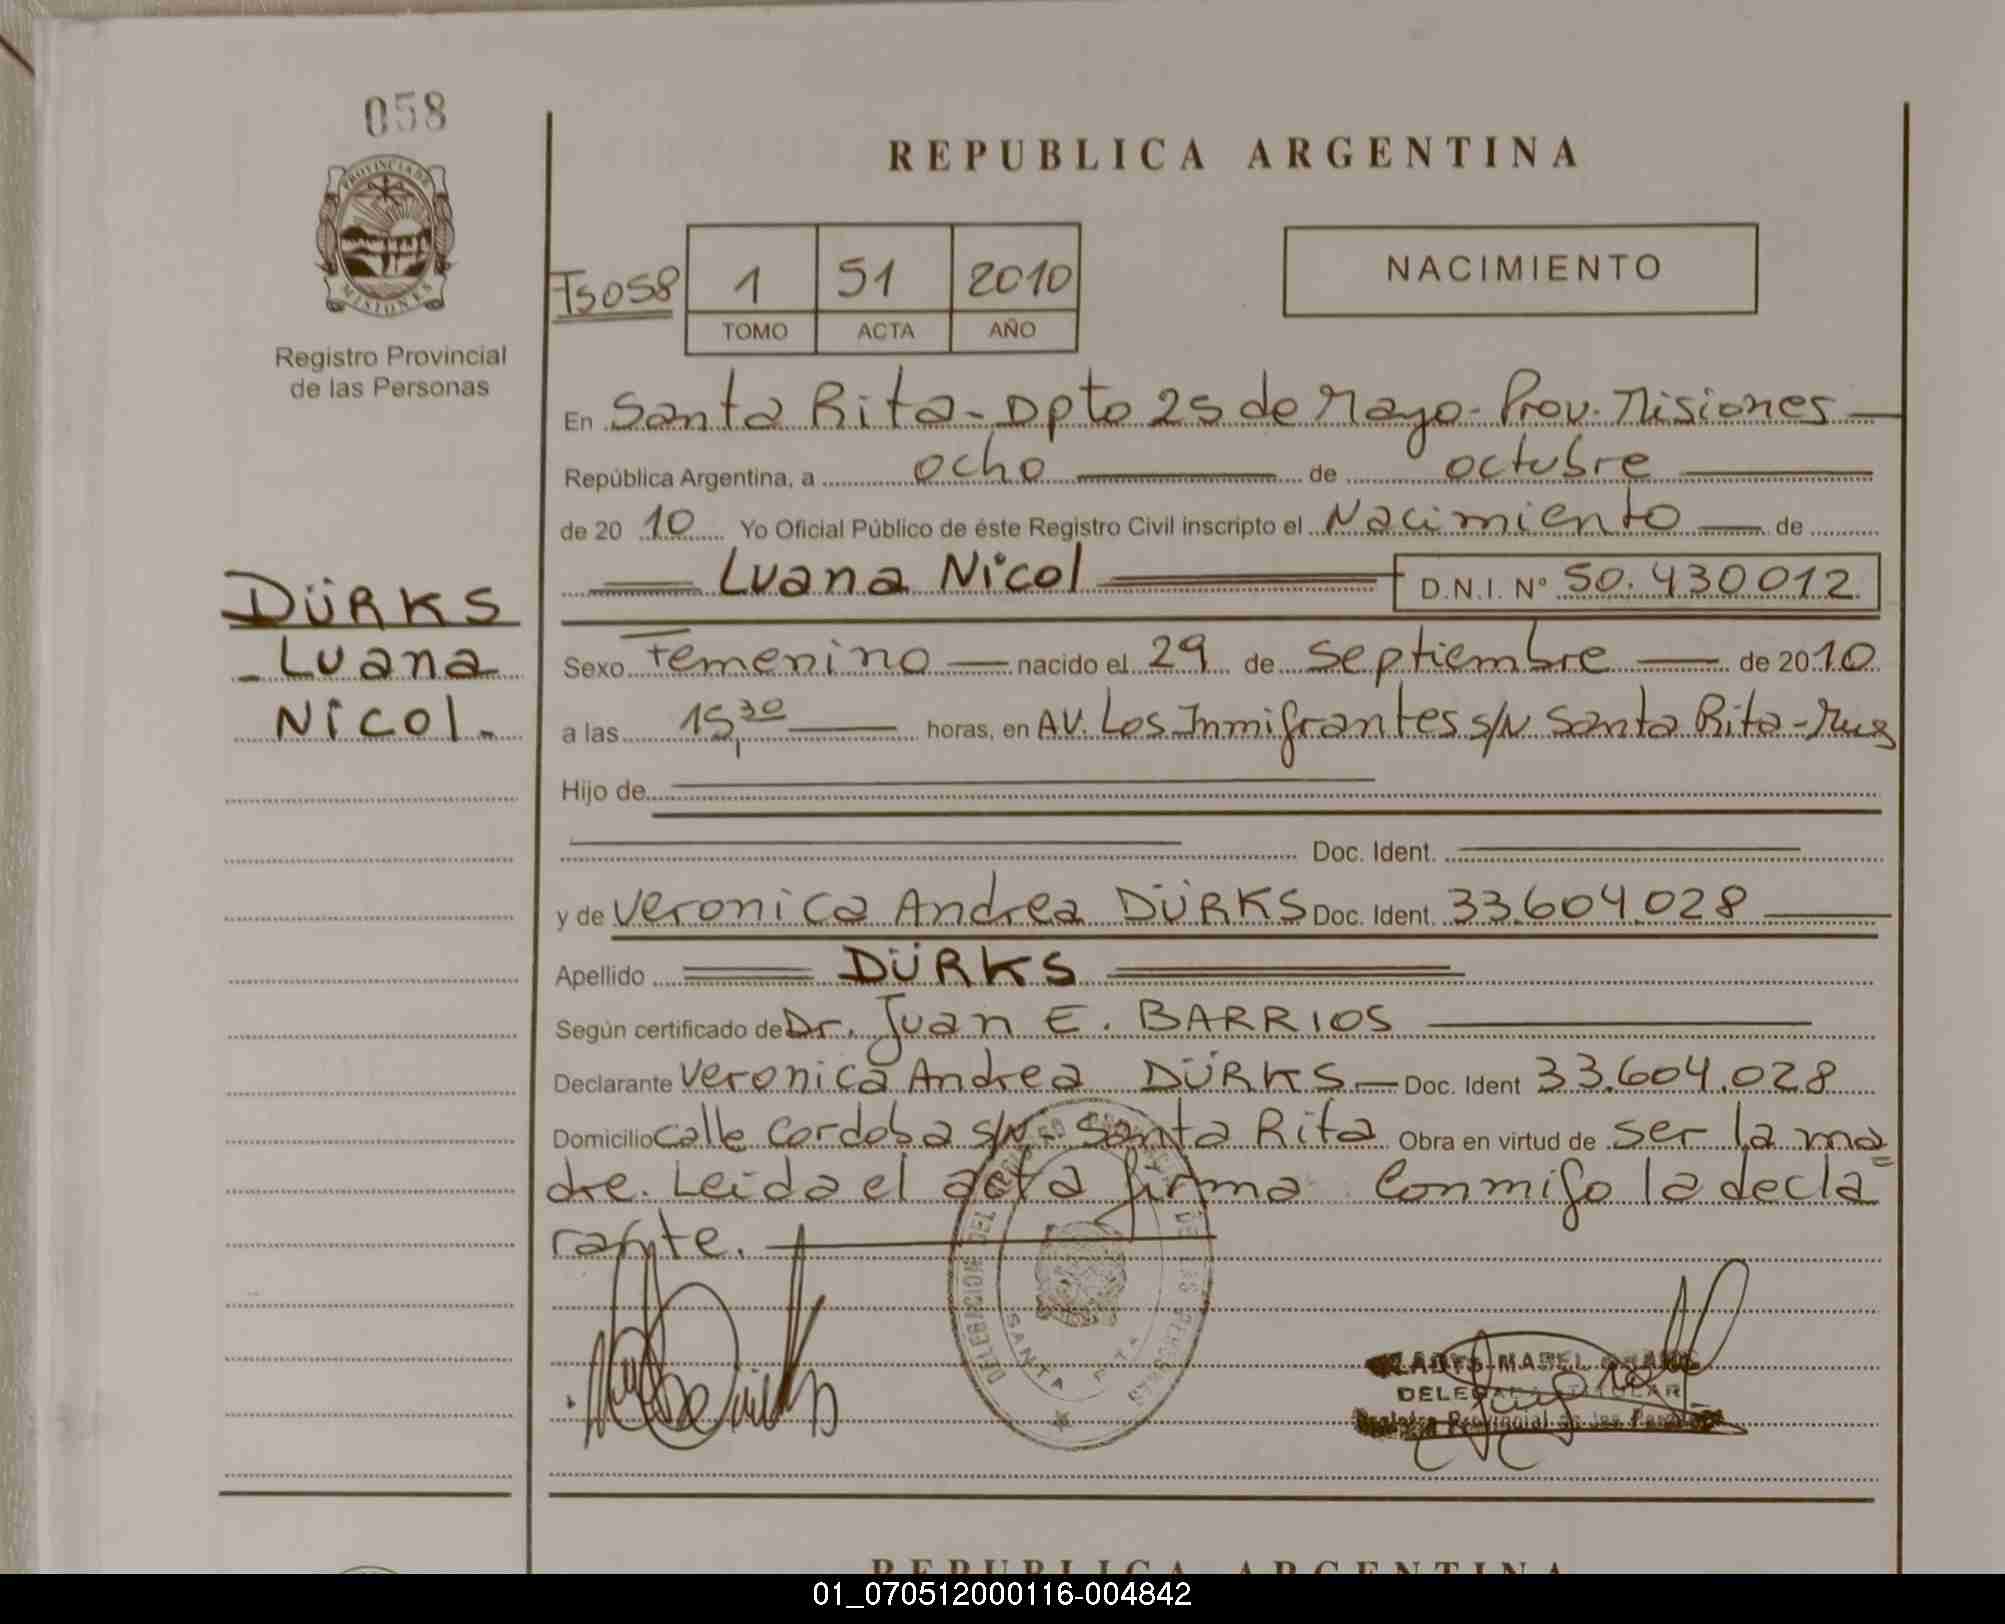 058
REPUBLICA ARGENTINA
PROVINCIA DE
MISIONES
Registro Provincial
de las Personas
Ts058
1 51 2010
TOMO ACTA AÑO
NACIMIENTO
En Santa Rita - Dpto 25 de Mayo - Prov. Misiones
República Argentina, a ocho de octubre
de 20 10 Yo Oficial Público de éste Registro Civil inscripto el Nacimiento de
Luana Nicol D.N.I. Nº 50.430012
DÜRKS
Luana
Nicol.
Sexo Femenino nacido el 29 de Septiembre de 2010
a las 15,30 horas, en AV. Los Inmigrantes s/N Santa Rita -
Hijo de
Doc. Ident.
y de Veronica Andrea DÜRKS Doc. Ident. 33.604.028
Apellido DÜRKS
Según certificado de Dr. Juan E. BARRIOS
Declarante Veronica Andrea DÜRKS Doc. Ident 33.604.028
Domicilio calle Cordoba s/N - Santa Rita Obra en virtud de ser la ma=
dre. Leida el acta firma conmigo la decla
rante.
SANTA RITA
DELEGADA TITULAR
Registro Provincial de las Personas
REPUBLICA ARGENTINA
01_070512000116-004842